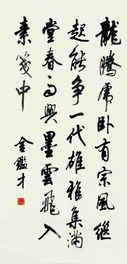 龍騰虎臥有宗風繼
起能爭一代雄雅集滿
堂春力興墨雲飛入
素箋中
金鑑才